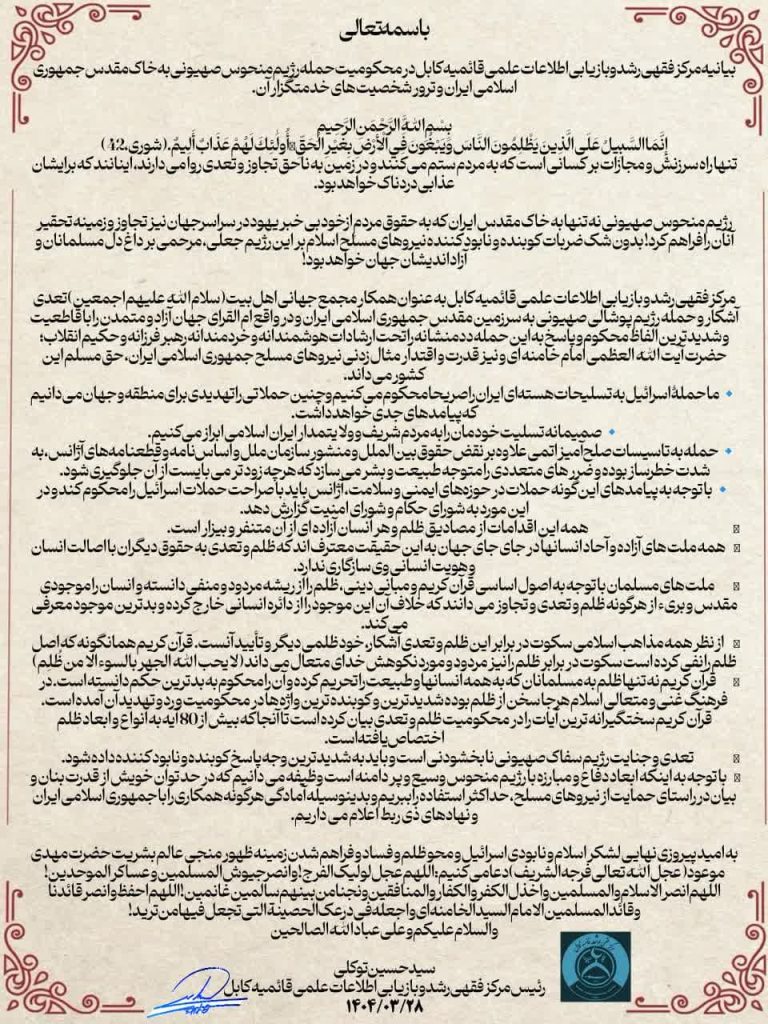 باسمه‌تعالی
بیانیه مرکز فقهی رشد و بازیابی اطلاعات علمی قائمیه کابل در محکومیت حمله رژیم منحوس صهیونی به خاک مقدس جمهوری
اسلامی ایران و ترور شخصیت‌های خدمتگزار آن.
بِسْمِ اللَّهِ الرَّحْمَنِ الرَّحِيمِ
إِنَّمَا السَّبِيلُ عَلَى الَّذِينَ يَظْلِمُونَ النَّاسَ وَيَبْغُونَ فِي الْأَرْضِ بِغَيْرِ الْحَقِّ أُولَئِكَ لَهُمْ عَذَابٌ أَلِيمٌ.(شوری،42)
تنها راه سرزنش و مجازات بر کسانی است که به مردم ستم می‌کنند و در زمین به ناحق تجاوز و تعدی روا می‌دارند، اینانند که برایشان
عذابی دردناک خواهد بود.
رژیم منحوس صهیونی نه تنها به خاک مقدس ایران که به حقوق مردم از خود بی خبر یهود در سراسر جهان نیز تجاوز و زمینه تحقیر
آنان را فراهم کرد! بدون شک ضربات کوبنده و نابود کننده نیروهای مسلح اسلام بر این رژیم جعلی، مرحمی بر داغ دل مسلمانان و
آزاد اندیشان جهان خواهد بود!
مرکز فقهی رشد و بازیابی اطلاعات علمی قائمیه کابل به عنوان همکار مجمع جهانی اهل بیت (سلام الله علیهم اجمعین) تعدی
آشکار و حمله رژیم پوشالی صهیونی به سرزمین مقدس جمهوری اسلامی ایران و در واقع ام القرای جهان آزاد و متمدن را با قاطعیت
و شدیدترین الفاظ محکوم و پاسخ به این حمله ددمنشانه را تحت ارشادات هوشمندانه و خردمندانه رهبر فرزانه و حکیم انقلاب؛
حضرت آیت الله العظمی امام خامنه ای و نیز قدرت و اقتدار مثال زدنی نیروهای مسلح جمهوری اسلامی ایران، حق مسلم این
کشور می‌داند.
🔹 ما حملهٔ اسرائیل به تسلیحات هسته‌ای ایران را صریحا محکوم می‌کنیم و چنین حملاتی را تهدیدی برای منطقه و جهان می‌دانیم
که پیامدهای جدی خواهد داشت.
🔹 صمیمانه تسلیت خودمان را به مردم شریف و ولایتمدار ایران اسلامی ابراز می‌کنیم.
🔹 حمله به تاسیسات صلح آمیز اتمی علاوه بر نقض حقوق بین الملل و منشور سازمان ملل و اساس نامه و قطعنامه های آژانس، به
شدت خطرساز بوده و ضررهای متعددی را متوجه طبیعت و بشر می‌سازد که هرچه زودتر می‌بایست از آن جلوگیری شود.
🔹 با توجه به پیامدهای این گونه حملات در حوزه‌های ایمنی و سلامت، آژانس باید با صراحت حملات اسرائیل را محکوم کند و در
این مورد به شورای حکام و شورای امنیت گزارش دهد.
همه این اقدامات از مصادیق ظلم و هر انسان آزاده ای از آن متنفر و بیزار است.
همه ملت های آزاده و آحاد انسانها در جای جای جهان به این حقیقت معترف اند که ظلم و تعدی به حقوق دیگران با اصالت انسان
وهویت انسانی وی سازگاری ندارد.
ملت های مسلمان با توجه به اصول اساسی قرآن کریم و مبانی دینی، ظلم را از ریشه مردود و منفی دانسته و انسان را موجودی
مقدس و بریء از هرگونه ظلم و تعدی و تجاوز می دانند که خلاف آن این موجود را از دائره انسانی خارج کرده و بدترین موجود معرفی
می کند.
از نظر همه مذاهب اسلامی سکوت در برابر این ظلم و تعدی آشکار، خود ظلمی دیگر و تأیید آنست. قرآن کریم همانگونه که اصل
ظلم را نفی کرده است سکوت در برابر ظلم را نیز مردود و مورد نکوهش خدای متعال می داند (لایحب الله الجهر بالسوء الا من ظلم)
قرآن کریم نه تنها ظلم به مسلمانان که به همه انسانها و طبیعت را تحریم کرده و آن را محکوم به بدترین حکم دانسته است. در
فرهنگ غنی و متعالی اسلام هرجا سخن از ظلم بوده شدیدترین و کوبنده ترین واژه ها در محکومیت ورد و تهدید آن آمده است.
قرآن کریم سختگیرانه ترین آیات را در محکومیت ظلم و تعدی بیان کرده است تا آنجا که بیش از 80 ایه به انواع و ابعاد ظلم
اختصاص یافته است.
تعدی و جنایت رژیم سفاک صهیونی نابخشودنی است و باید به شدیدترین وجه پاسخ کوبنده و نابود کننده داده شود.
با توجه به اینکه ابعاد دفاع و مبارزه با رژیم منحوس وسیع و پر دامنه است وظیفه می دانیم که در حد توان خویش از قدرت بنان و
بیان در راستای حمایت از نیروهای مسلح، حداکثر استفاده را ببریم و بدینوسیله آمادگی هرگونه همکاری را با جمهوری اسلامی ایران
و نهادهای ذی ربط اعلام می داریم.
به امید پیروزی نهایی لشکر اسلام و نابودی اسرائیل و محو ظلم و فساد و فراهم شدن زمینه ظهور منجی عالم بشریت حضرت مهدی
موعود (عجل الله تعالی فرجه الشریف) دعا می کنیم؛ اللهم عجل لولیک الفرج! وانصر جیوش المسلمین و عساکر الموحدین!
اللهم انصر الاسلام و المسلمین واخذل الکفر و الکفار و المنافقین ونجنا من بینهم سالمین غانمین! اللهم احفظ وانصر قائدنا
و قائد المسلمین الامام السید الخامنه ای واجعله فی درعک الحصینة التی تجعل فیها من ترید!
والسلام علیکم و علی عباد الله الصالحین
سید حسین توکلی
رئیس مرکز فقهی رشد و بازیابی اطلاعات علمی قائمیه کابل
۱۴۰۴/۰۳/۲۸